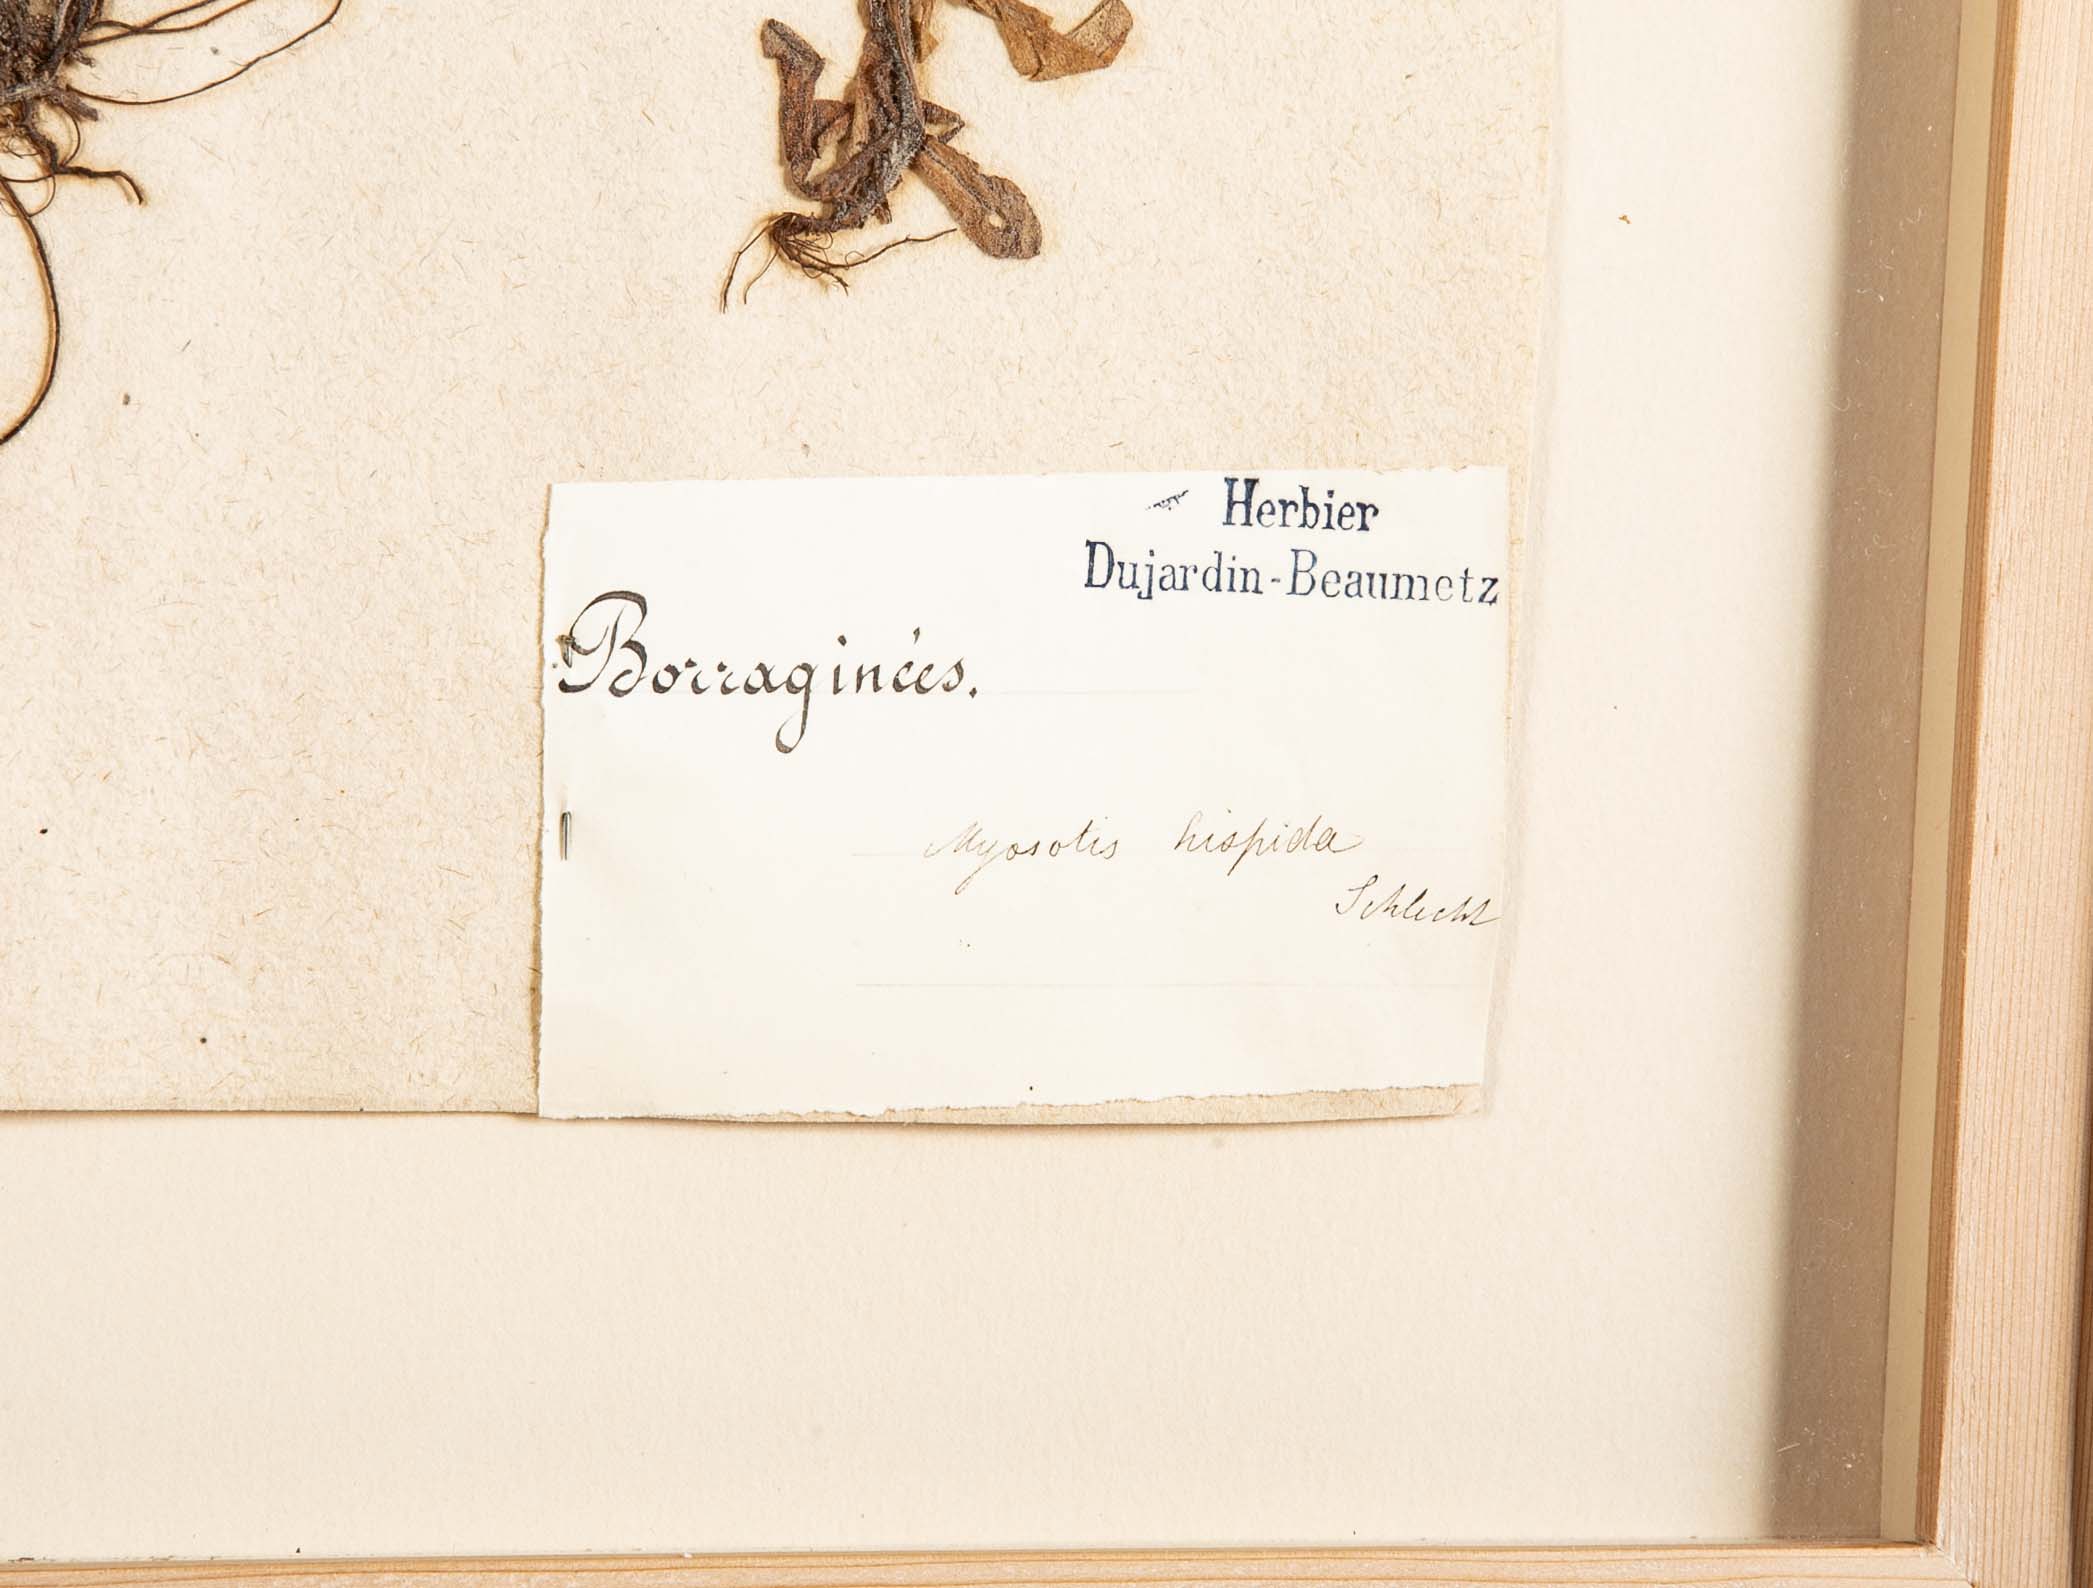 Herbier
Dujardin-Beaumetz
Borraginées.
Myosotis hispida
Schlecht